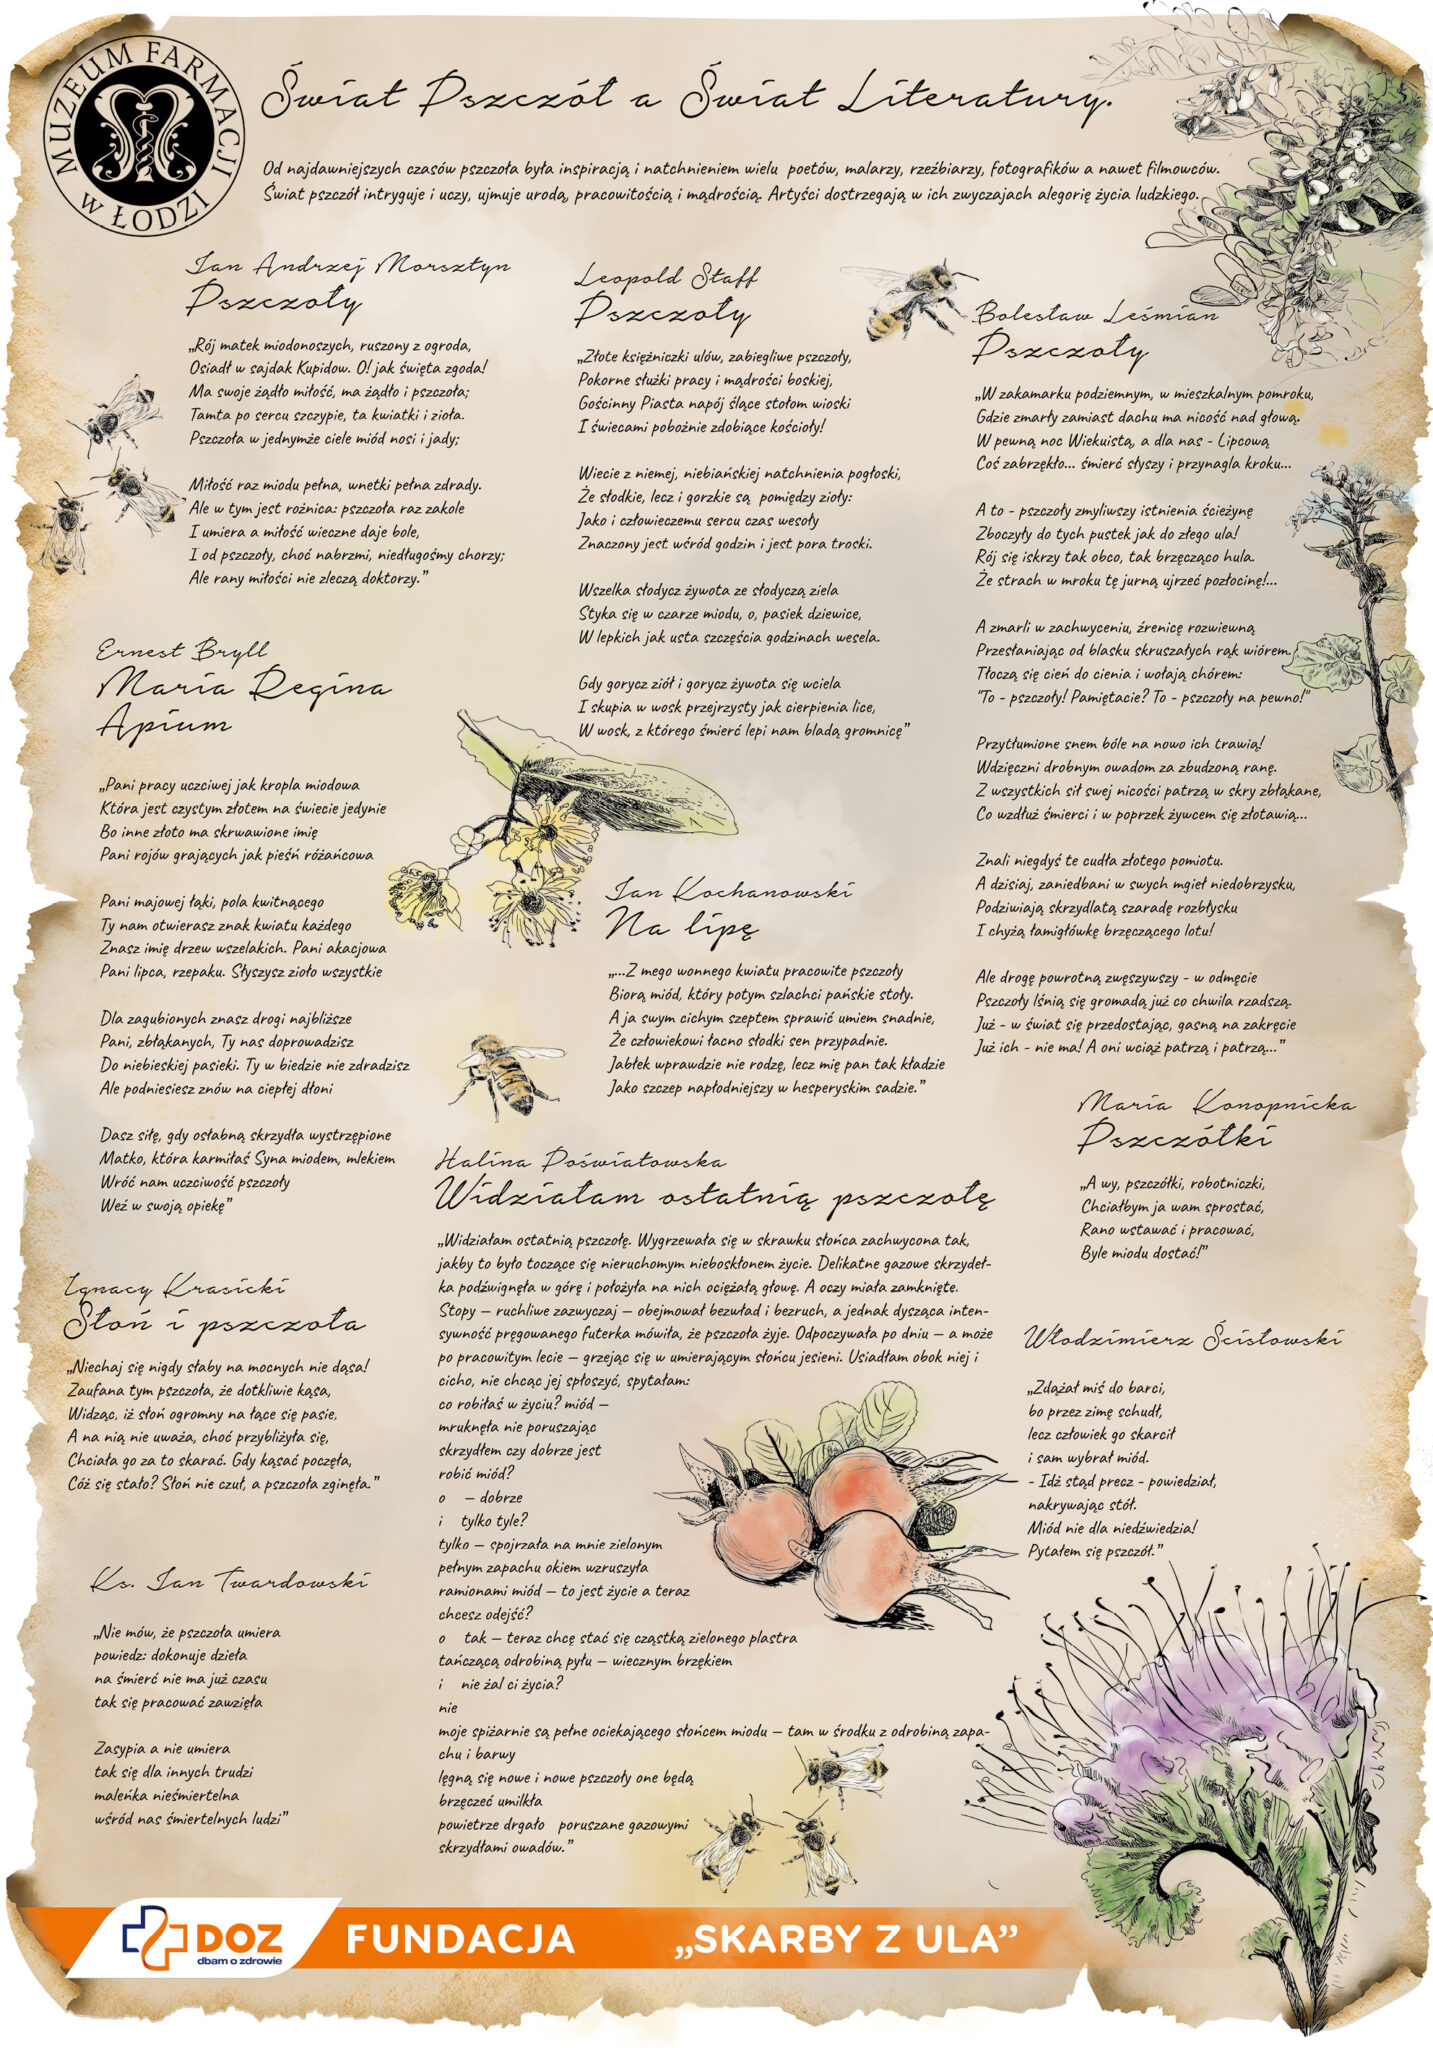 MUZEUM FARMACJI
W ŁODZI
Świat Pszczół a Świat Literatury.
Od najdawniejszych czasów pszczoła była inspiracją i natchnieniem wielu poetów, malarzy, rzeźbiarzy, fotografików a nawet filmowców.
Świat pszczół intryguje i uczy, ujmuje urodą, pracowitością i mądrością. Artyści dostrzegają w ich zwyczajach alegorię życia ludzkiego.
Jan Andrzej Morsztyn
Pszczoły
„Rój matek miodonoszych, ruszony z ogroda,
Osiadł w sajdak Kupidow. O! jak święta zgoda!
Ma swoje żądło miłość, ma żądło i pszczoła;
Tamta po sercu szczypie, ta kwiatki i zioła.
Pszczoła w jednymże ciele miód nosi i jady;
Miłość raz miodu pełna, wnetki pełna zdrady.
Ale w tym jest rożnica: pszczoła raz zakole
I umiera a miłość wieczne daje bole,
I od pszczoły, choć nabrzmi, niedługośmy chorzy;
Ale rany miłości nie zleczą doktorzy.”
Ernest Bryll
Maria Regina
Apium
„Pani pracy uczciwej jak kropla miodowa
Która jest czystym złotem na świecie jedynie
Bo inne złoto ma skrwawione imię
Pani rojów grających jak pieśń różańcowa
Pani majowej łąki, pola kwitnącego
Ty nam otwierasz znak kwiatu każdego
Znasz imię drzew wszelakich. Pani akacjowa
Pani lipca, rzepaku. Słyszysz zioło wszystkie
Dla zagubionych znasz drogi najbliższe
Pani, zbłąkanych, Ty nas doprowadzisz
Do niebieskiej pasieki. Ty w biedzie nie zdradzisz
Ale podniesiesz znów na ciepłej dłoni
Dasz siłę, gdy osłabną skrzydła wystrzępione
Matko, która karmiłaś Syna miodem, mlekiem
Wróć nam uczciwość pszczoły
Weź w swoją opiekę”
Ignacy Krasicki
Słoń i pszczoła
„Niechaj się nigdy słaby na mocnych nie dąsa!
Zaufana tym pszczoła, że dotkliwie kąsa,
Widząc, iż słoń ogromny na łące się pasie,
A na nią nie uważa, choć przybliżyła się,
Chciała go za to skarać. Gdy kąsać poczęła,
Cóż się stało? Słoń nie czuł, a pszczoła zginęła.”
Ks. Jan Twardowski
„Nie mów, że pszczoła umiera
powiedz: dokonuje dzieła
na śmierć nie ma już czasu
tak się pracować zawzięła
Zasypia a nie umiera
tak się dla innych trudzi
maleńka nieśmiertelna
wśród nas śmiertelnych ludzi”
Leopold Staff
Pszczoły
„Złote księżniczki ulów, zabiegliwe pszczoły,
Pokorne służki pracy i mądrości boskiej,
Gościnny Piasta napój ślące stołom wioski
I świecami pobożnie zdobiące kościoły!
Wiecie z niemej, niebiańskiej natchnienia pogłoski,
Że słodkie, lecz i gorzkie są pomiędzy zioły:
Jako i człowieczemu sercu czas wesoły
Znaczony jest wśród godzin i jest pora troski.
Wszelka słodycz żywota ze słodyczą ziela
Styka się w czarze miodu, o, pasiek dziewice,
W lepkich jak usta szczęścia godzinach wesela.
Gdy gorycz ziół i gorycz żywota się wciela
I skupia w wosk przejrzysty jak cierpienia lice,
W wosk, z którego śmierć lepi nam bladą gromnicę”
Jan Kochanowski
Na lipę
„...Z mego wonnego kwiatu pracowite pszczoły
Biorą miód, który potym szlachci pańskie stoły.
A ja swym cichym szeptem sprawić umiem snadnie,
Że człowiekowi łacno słodki sen przypadnie.
Jabłek wprawdzie nie rodzę, lecz mię pan tak kładzie
Jako szczep napłodniejszy w hesperyskim sadzie.”
Halina Poświatowska
Widziałam ostatnią pszczołę
„Widziałam ostatnią pszczołę. Wygrzewała się w skrawku słońca zachwycona tak,
jakby to było toczące się nieruchomym nieboskłonem życie. Delikatne gazowe skrzydeł-
ka podźwignęła w górę i położyła na nich ociężałą głowę. A oczy miała zamknięte.
Stopy — ruchliwe zazwyczaj — obejmował bezwład i bezruch, a jednak dysząca inten-
sywność pręgowanego futerka mówiła, że pszczoła żyje. Odpoczywała po dniu — a może
po pracowitym lecie — grzejąc się w umierającym słońcu jesieni. Usiadłam obok niej i
cicho, nie chcąc jej spłoszyć, spytałam:
co robiłaś w życiu? miód —
mruknęła nie poruszając
skrzydłem czy dobrze jest
robić miód?
o — dobrze
i tylko tyle?
tylko — spojrzała na mnie zielonym
pełnym zapachu okiem wzruszyła
ramionami miód — to jest życie a teraz
chcesz odejść?
o tak — teraz chcę stać się cząstką zielonego plastra
tańczącą odrobiną pyłu — wiecznym brzękiem
i nie żal ci życia?
nie
moje spiżarnie są pełne ociekającego słońcem miodu — tam w środku z odrobiną zapa-
chu i barwy
lęgną się nowe i nowe pszczoły one będą
brzęczeć umilkła
powietrze drgało poruszane gazowymi
skrzydłami owadów.”
Bolesław Leśmian
Pszczoły
„W zakamarku podziemnym, w mieszkalnym pomroku,
Gdzie zmarły zamiast dachu ma nicość nad głową.
W pewną noc Wiekuistą, a dla nas - Lipcową
Coś zabrzękło... śmierć słyszy i przynagla kroku...
A to - pszczoły zmyliwszy istnienia ścieżynę
Zboczyły do tych pustek jak do złego ula!
Rój się iskrzy tak obco, tak brzęcząco hula.
Że strach w mroku tę jurną ujrzeć pozłocinę!...
A zmarli w zachwyceniu, źrenicę rozwiewną
Przesłaniając od blasku skruszałych rąk wiórem.
Tłoczą się cień do cienia i wołają chórem:
"To - pszczoły! Pamiętacie? To - pszczoły na pewno!"
Przytłumione snem bóle na nowo ich trawią!
Wdzięczni drobnym owadom za zbudzoną ranę.
Z wszystkich sił swej nicości patrzą w skry zbłąkane,
Co wzdłuż śmierci i w poprzek żywcem się złotawią...
Znali niegdyś te cudła złotego pomiotu.
A dzisiaj, zaniedbani w swych mgieł niedobrzysku,
Podziwiają skrzydlatą szaradę rozbłysku
I chyżą łamigłówkę brzęczącego lotu!
Ale drogę powrotną zwęszywszy - w odmęcie
Pszczoły lśnią się gromadą już co chwila rzadszą.
Już - w świat się przedostając, gasną na zakręcie
Już ich - nie ma! A oni wciąż patrzą i patrzą...”
Maria Konopnicka
Pszczółki
„A wy, pszczółki, robotniczki,
Chciałbym ja wam sprostać,
Rano wstawać i pracować,
Byle miodu dostać!”
Włodzimierz Ścisłowski
„Zdążał miś do barci,
bo przez zimę schudł,
lecz człowiek go skarcił
i sam wybrał miód.
- Idź stąd precz - powiedział,
nakrywając stół.
Miód nie dla niedźwiedzia!
Pytałem się pszczół.”
DOZ
dbam o zdrowie
FUNDACJA
„SKARBY Z ULA”